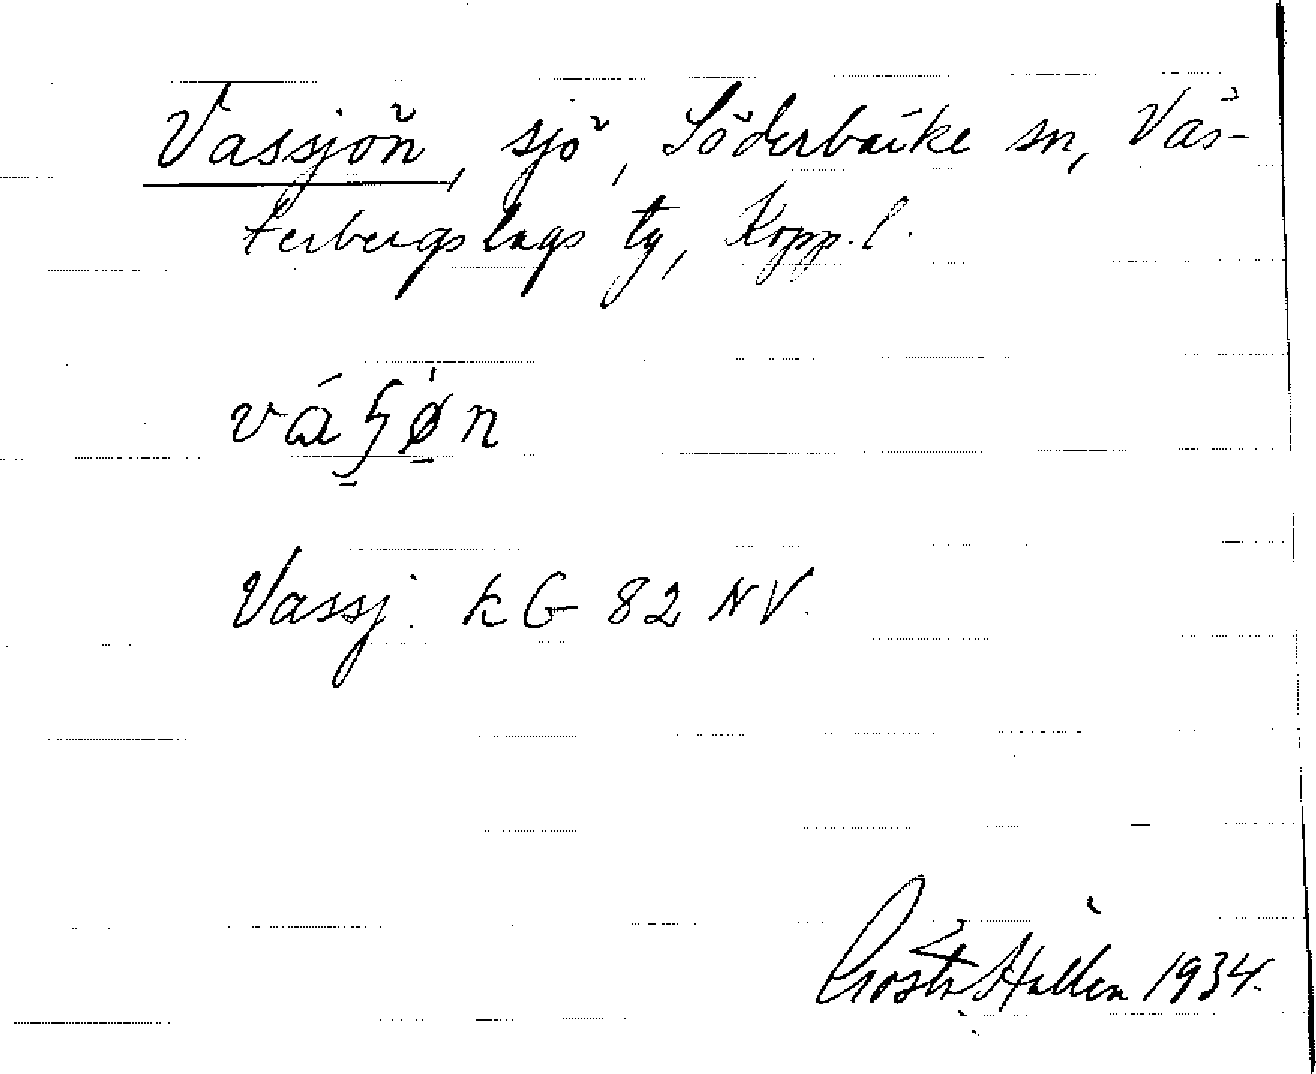 Vassjön, sjö, Söderbärke sn, Väs-
terbergslags tg, Kopp. l.
Vassj. kG 82 NV.
Gösta Hallén 1934.